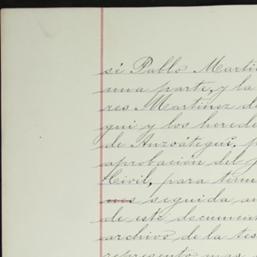 si Pablo Marti
una parte, y la
res Martinez de
gui y los herede
de Anzoátegui, p
aprobación del j
Civil, para term
mes seguida an
de este documen
archivo de la tes
represento mas